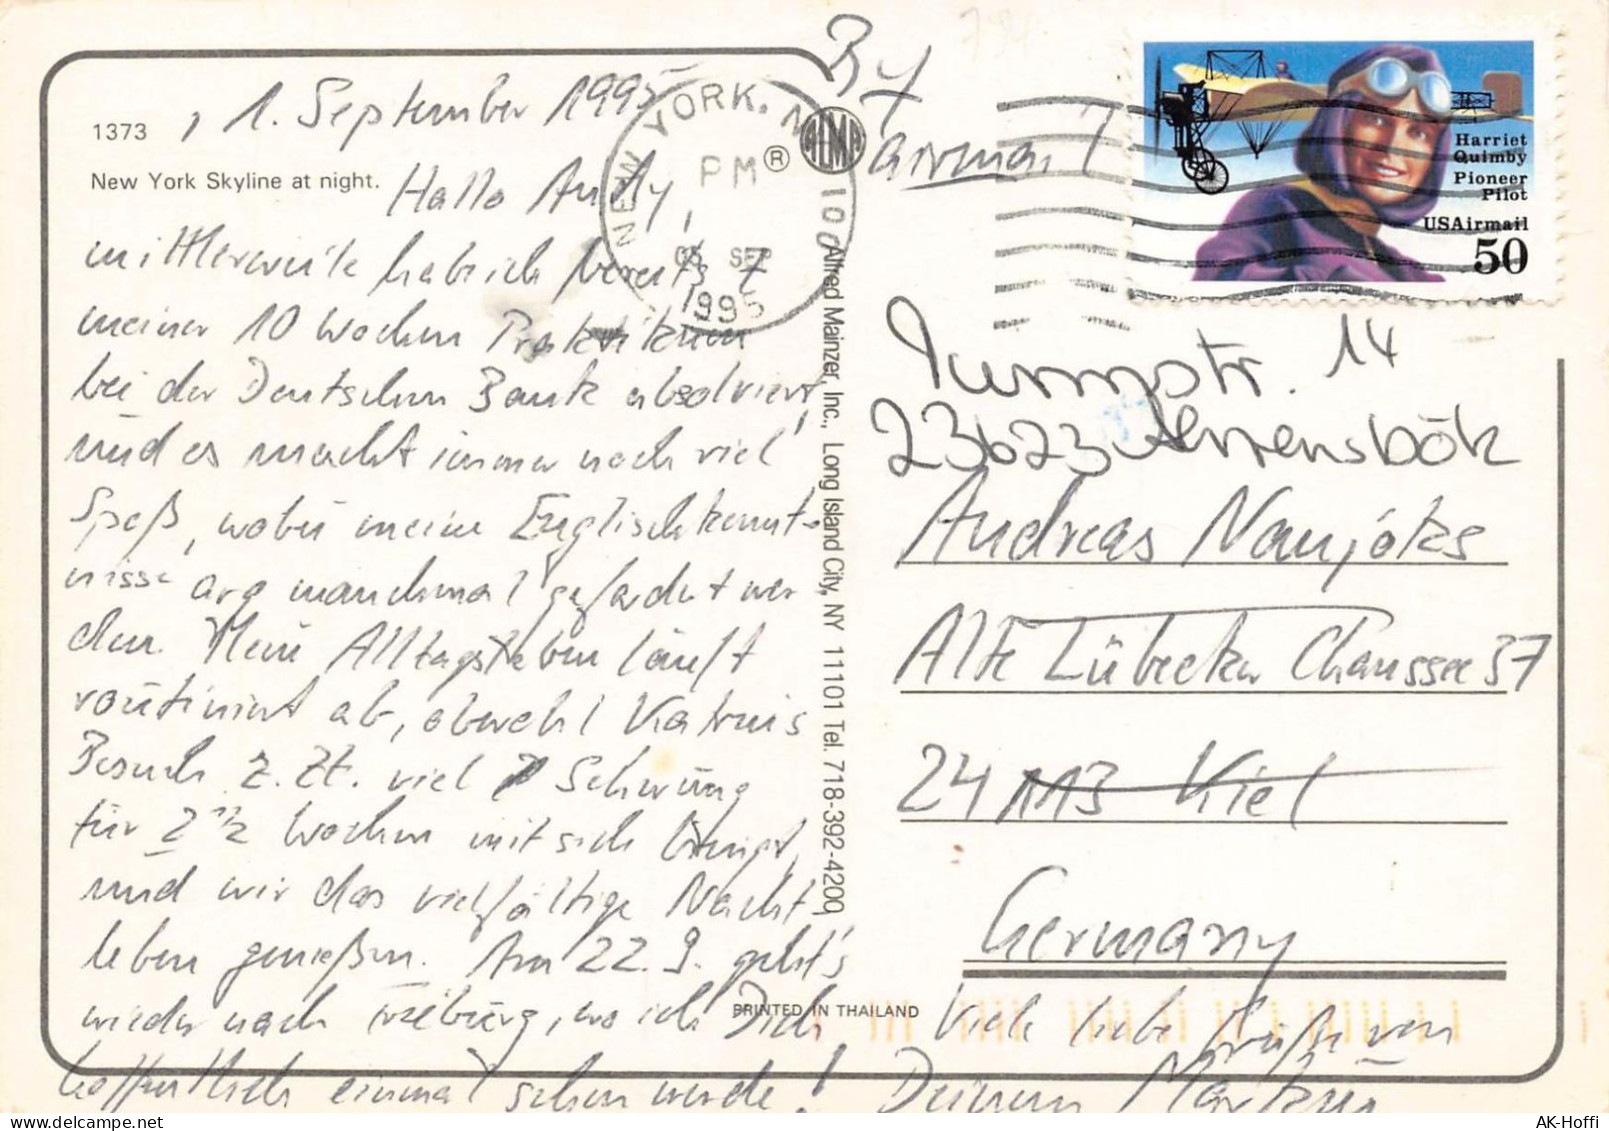 1373
New York Skyline at night.
, 1. September 1995
Hallo Andy,
mittlerweile habe ich bereits 7
meiner 10 Wochen Praktikum
bei der Deutschen Bank absolviert,
und es macht immer noch viel
Spaß, wobei meine Englischkennt-
nisse arg manchmal gefordert wer
den. Mein Alltagsleben läuft
routiniert ab, obwohl Katrins
Besuch z. Zt. viel Schwung
für 2 1/2 Wochen mit sich bringt,
und wir das vielfältige Nacht
leben genießen. Am 22. 9. geht's
wieder nach Freiburg, wo ich Dich
hoffentlich einmal sehen werde!
Viele liebe Grüße von
Deinem Markus
NEW YORK, N
PM
100
05 SEP
1995
®
AHEMA
Alfred Mainzer, Inc., Long Island City, NY 11101 Tel. 718-392-4200
PRINTED IN THAILAND
By
airmail
Harriet
Quimby
Pioneer
Pilot
USAirmail
50
Turmstr. 14
23623 Ahrensbök
Andreas Naujoks
Alte Lübecker Chaussee 37
24113 Kiel
Germany
AK-Hoffi